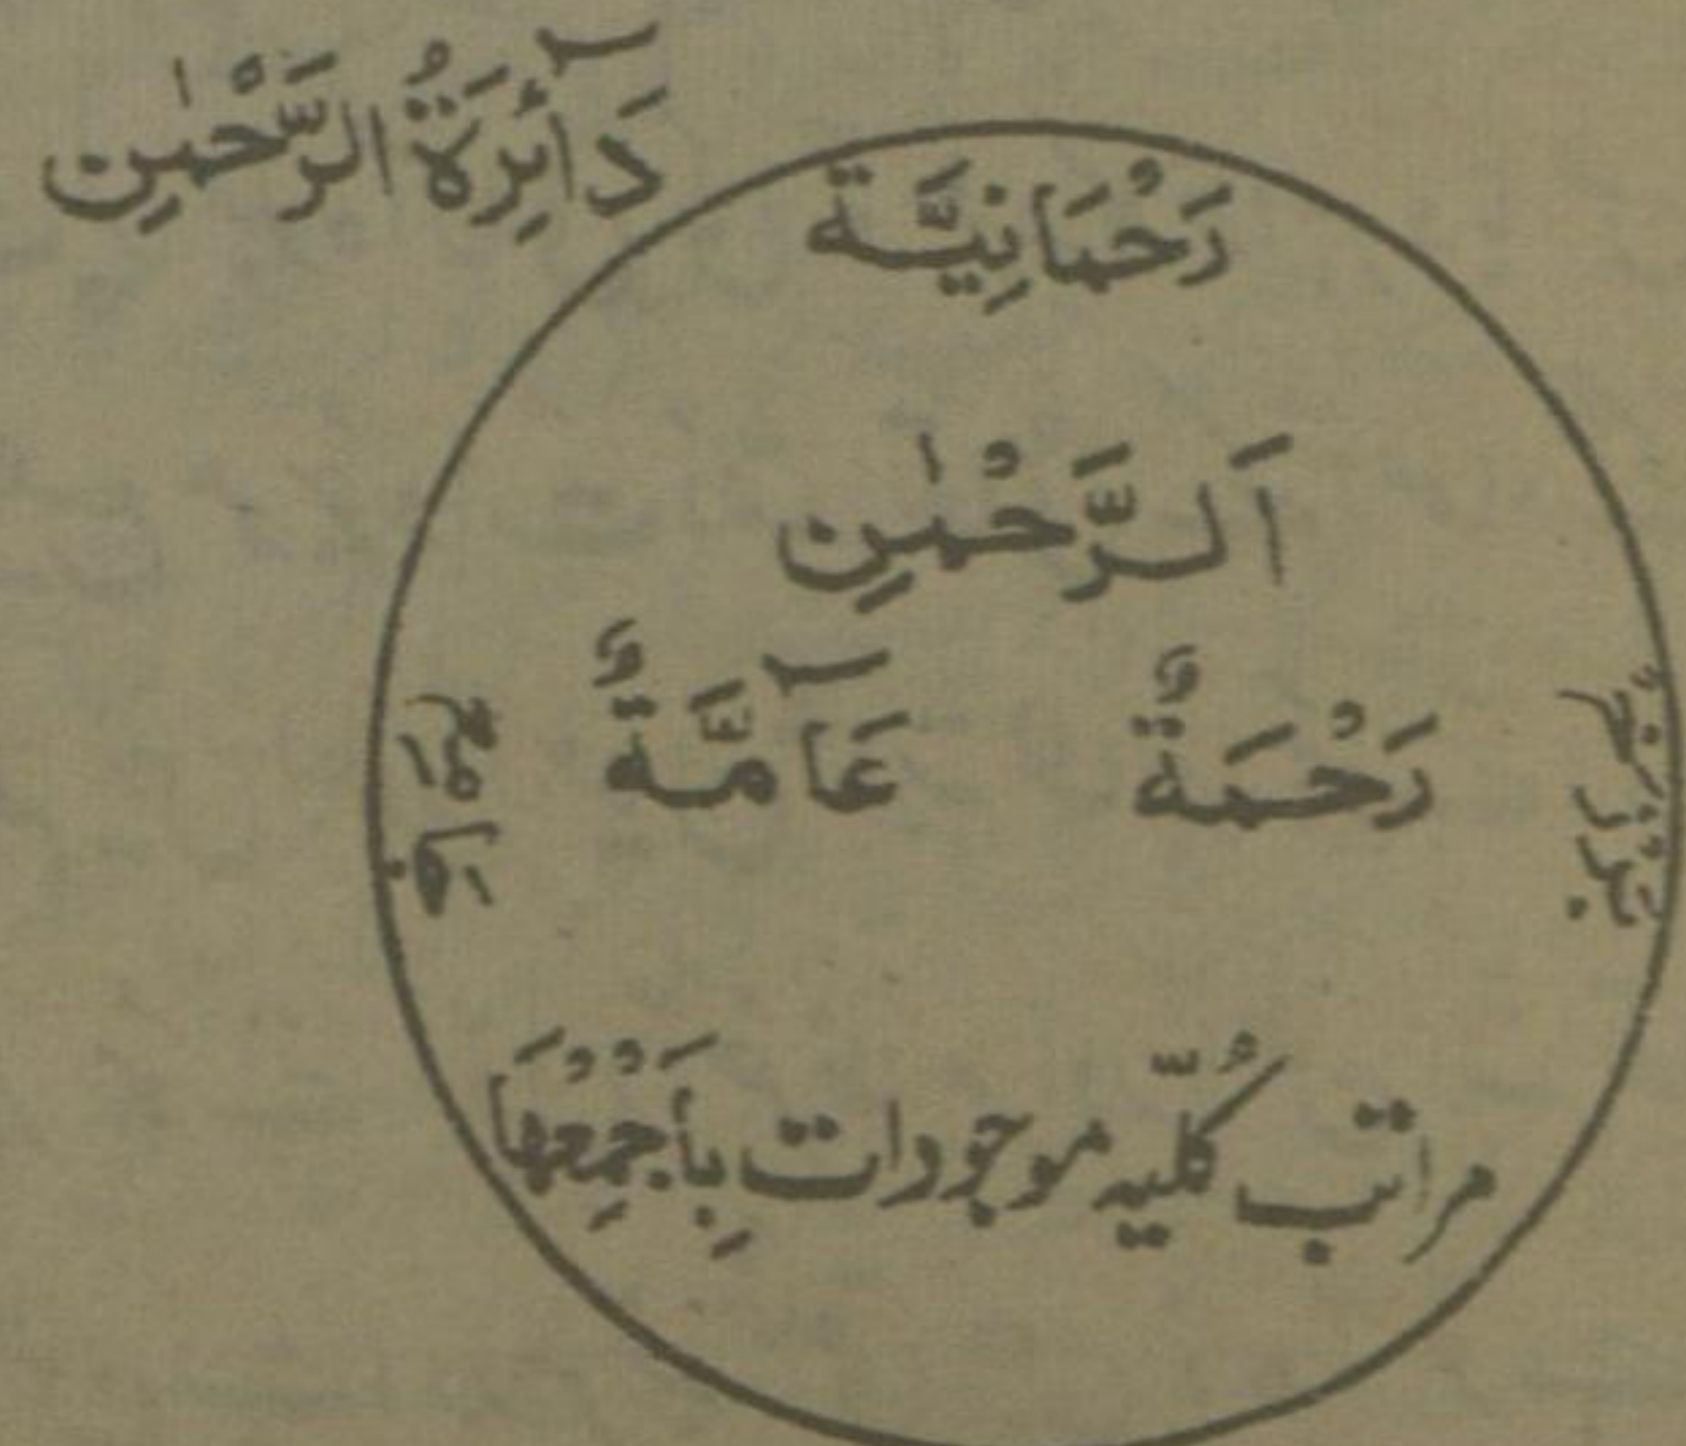 دَآئِرَةُ الرَّحْمٰنِ
رَحْمَانِيَّة
اَلرَّحْمٰنِ
رَحْمَةٌ عَآمَّةٌ
مراتب كُلّيه موجودات بِأَجْمُعِهَا